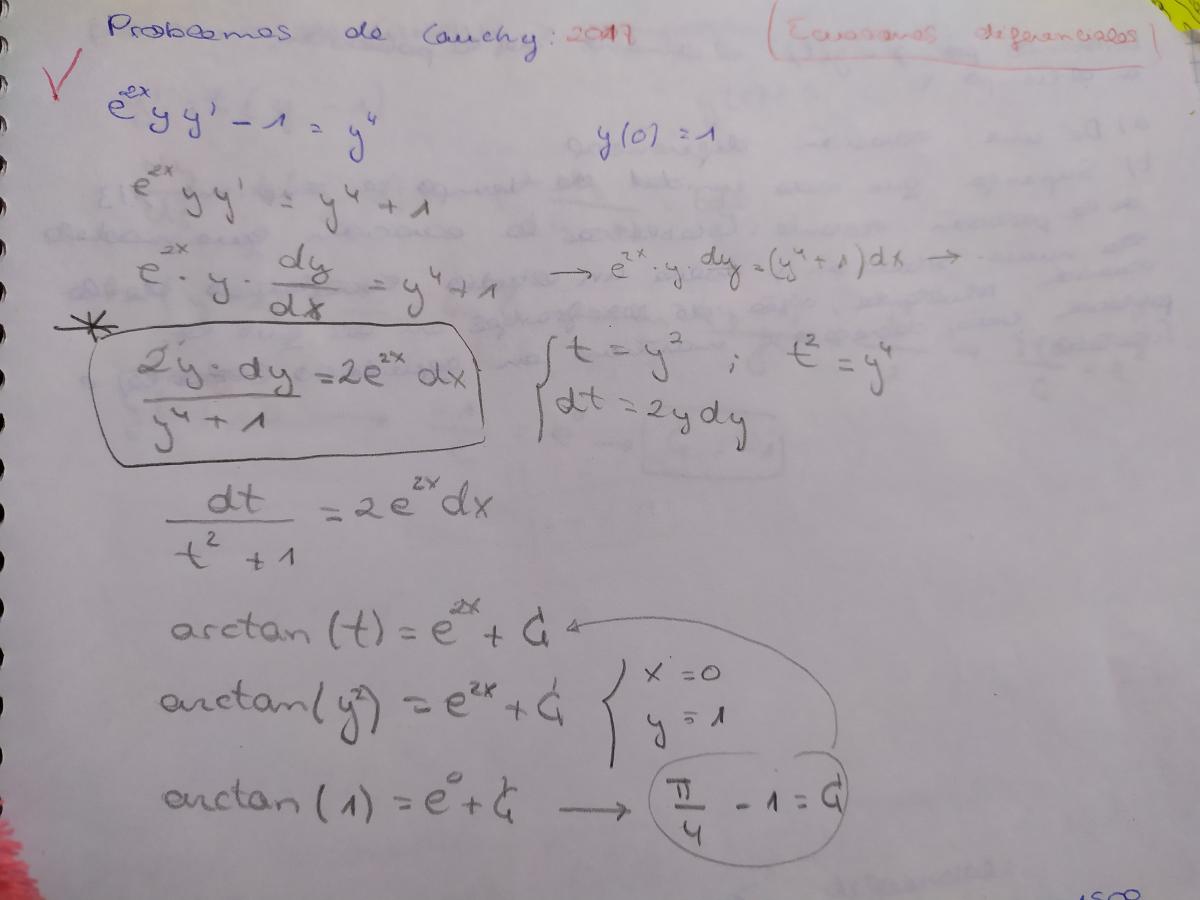 Problemas de Cauchy: 2017 (Ecuaciones diferenciales)
e^{2x} y y' - 1 = y^4 y(0) = 1
e^{2x} y y' = y^4 + 1
e^{2x} · y · dy/dx = y^4 + 1 → e^{2x} · y dy = (y^4 + 1) dx →
* 2y · dy / (y^4 + 1) = 2e^{2x} dx { t = y^2 ; t^2 = y^4
dt = 2y dy
dt / (t^2 + 1) = 2e^{2x} dx
arctan (t) = e^{2x} + C_1
arctan (y^2) = e^{2x} + C_1 { x = 0
y = 1
arctan (1) = e^0 + C_1 → π/4 - 1 = C_1